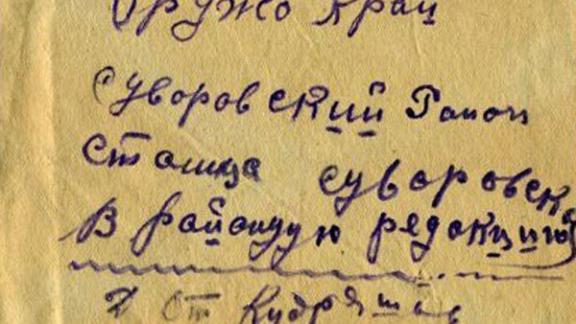 Оружо Край
Суворовский Рамон
Столица суворовск
В районую рядокцию
Д От Кудряшов